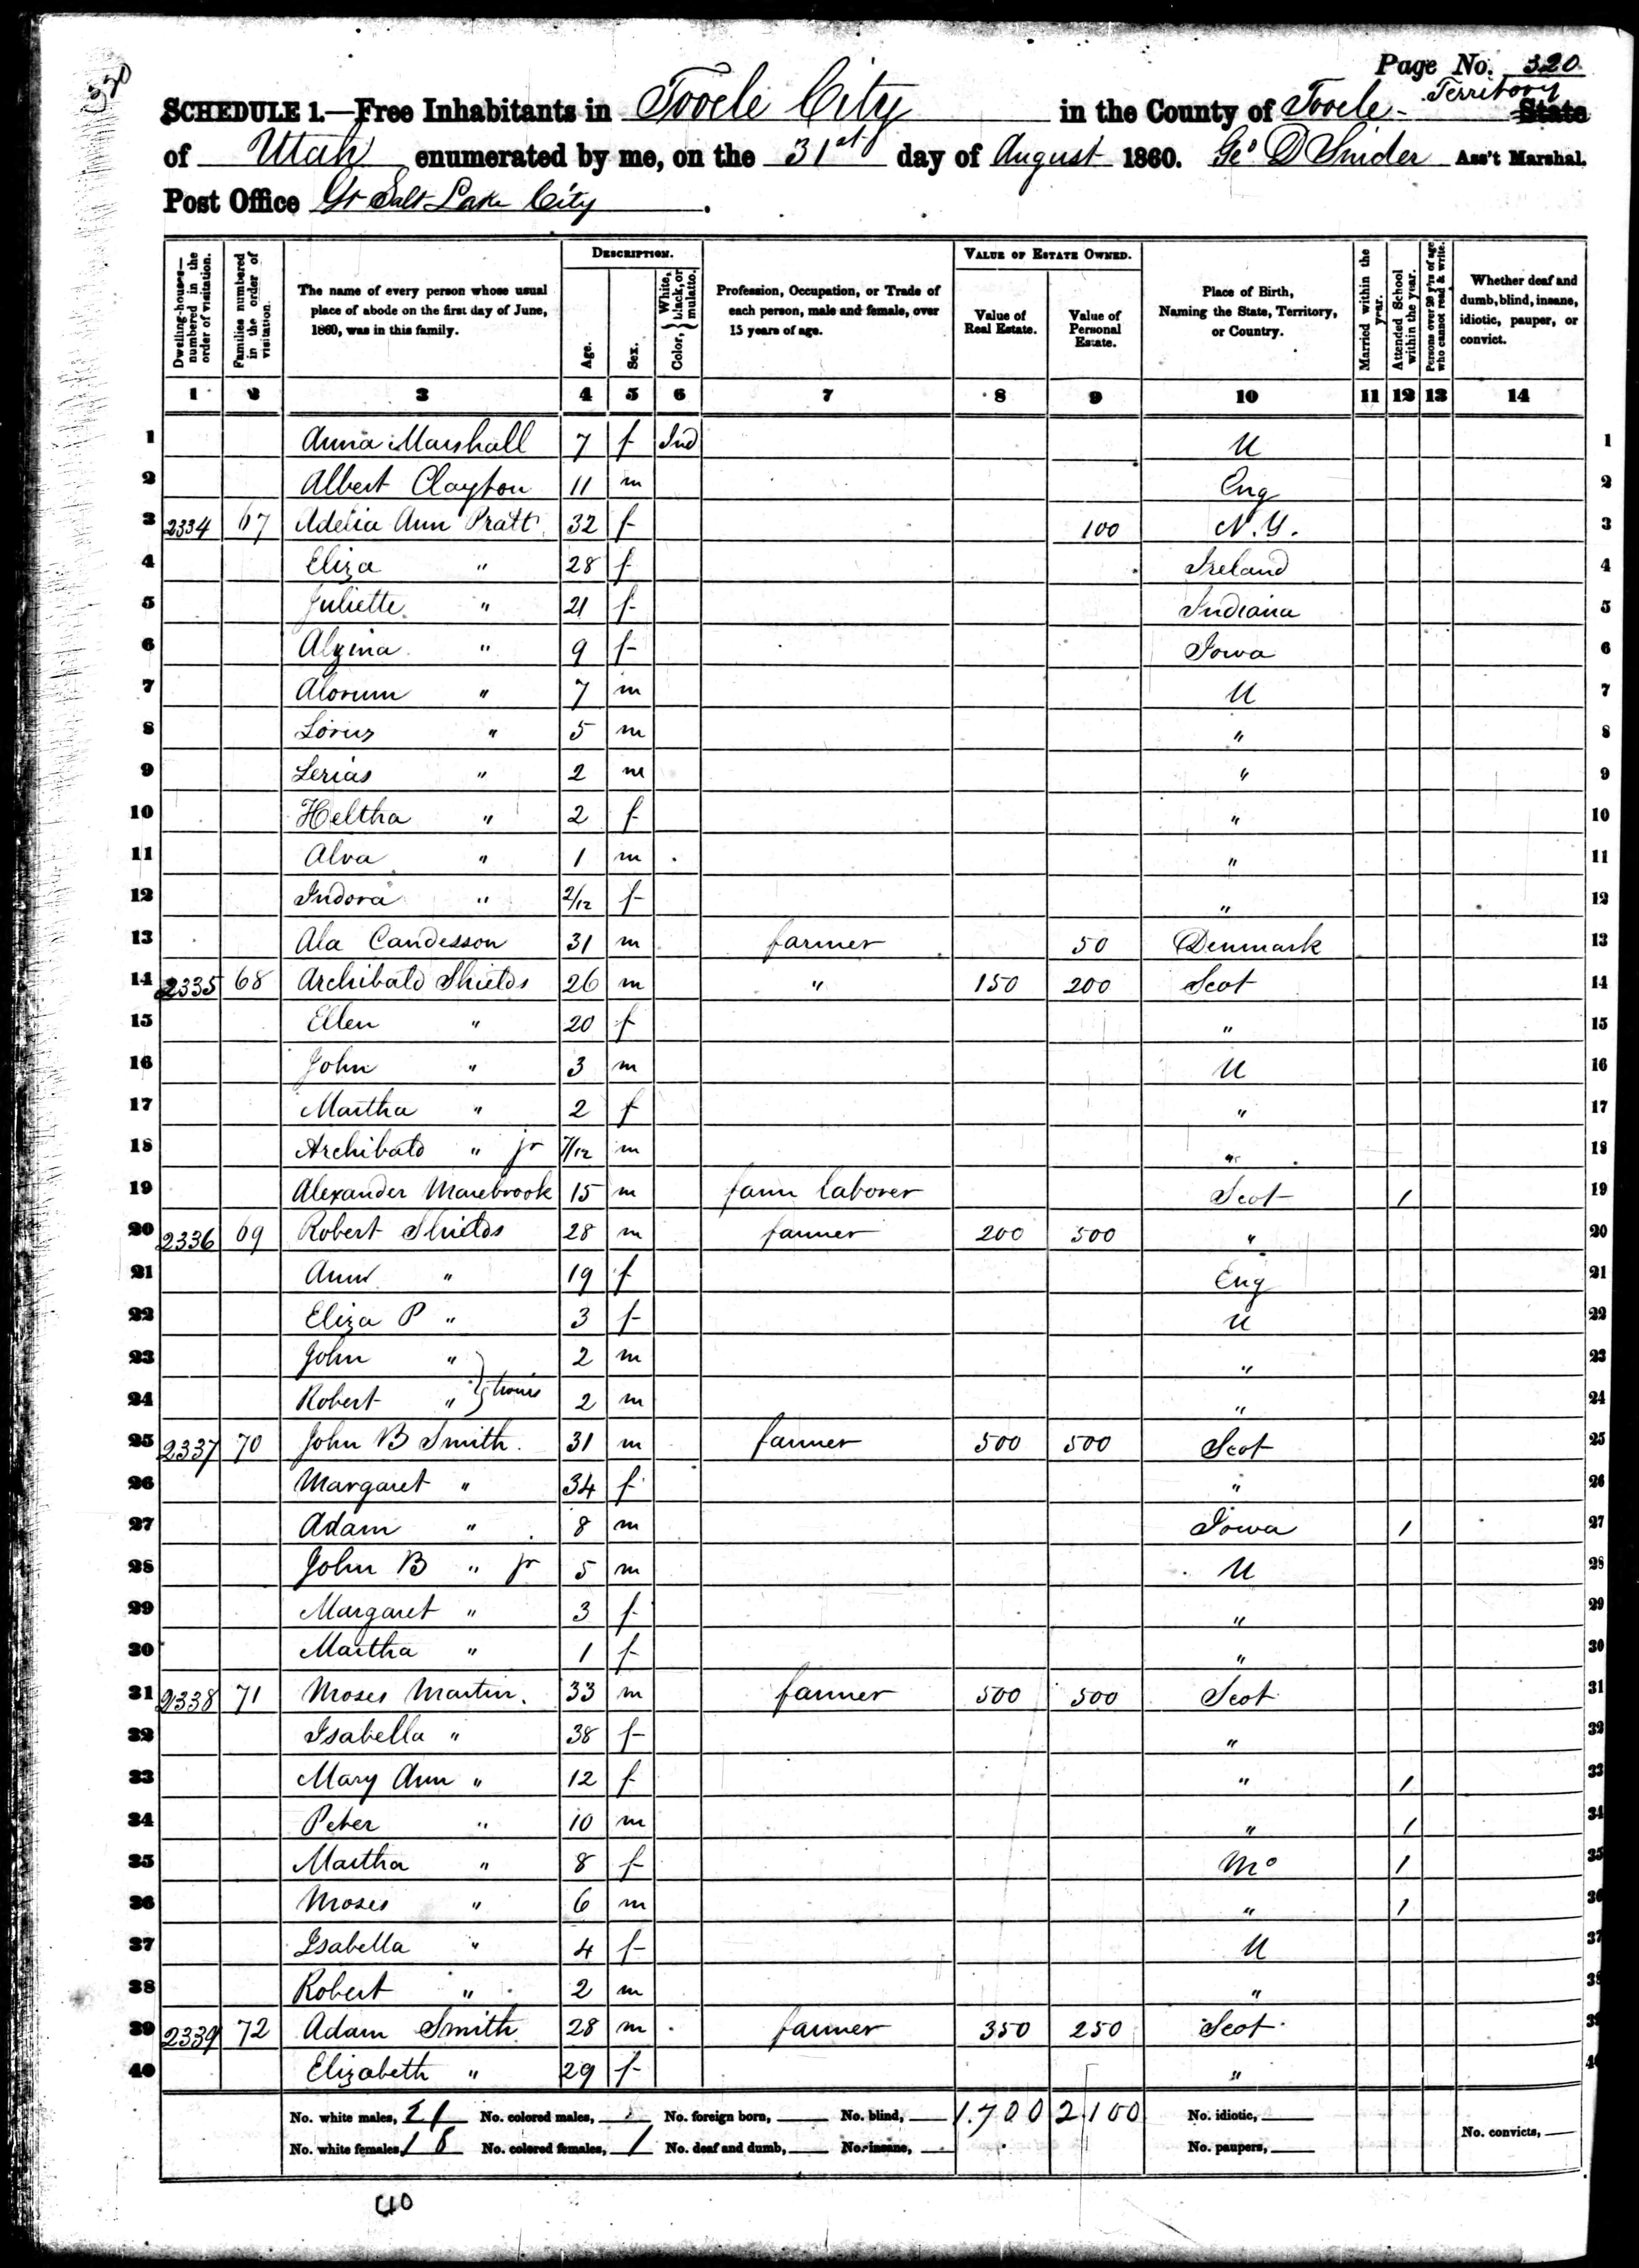 320
Page No. 320
SCHEDULE 1.—Free Inhabitants in Tooele City in the County of Tooele Territory State
of Utah enumerated by me, on the 31st day of August 1860. Geo D Snider Ass't Marshal.
Post Office Gt Salt Lake City.
Dwelling-houses—numbered in the order of visitation. Families numbered in the order of visitation. The name of every person whose usual place of abode on the first day of June, 1860, was in this family. DESCRIPTION. Age. Sex. Color, White, black, or mulatto. Profession, Occupation, or Trade of each person, male and female, over 15 years of age. VALUE OF ESTATE OWNED. Value of Real Estate. Value of Personal Estate. Place of Birth, Naming the State, Territory, or Country. Married within the year. Attended School within the year. Persons over 20 y'rs of age who cannot read & write. Whether deaf and dumb, blind, insane, idiotic, pauper, or convict.
1 2 3 4 5 6 7 8 9 10 11 12 13 14
1 Anna Marshall 7 f Ind U 1
2 Albert Clayton 11 m Eng 2
3 2334 67 Adelia Ann Pratt 32 f 100 N.Y. 3
4 Eliza " 28 f Ireland 4
5 Juliette " 21 f Indiana 5
6 Alzina " 9 f Iowa 6
7 Alorum " 7 m U 7
8 Lorus " 5 m " 8
9 Lerias " 2 m " 9
10 Heltha " 2 f " 10
11 Alva " 1 m " 11
12 Indora " 2/12 f " 12
13 Ala Candesson 31 m farmer 50 Denmark 13
14 2335 68 Archibald Shields 26 m " 150 200 Scot 14
15 Ellen " 20 f " 15
16 John " 3 m U 16
17 Martha " 2 f " 17
18 Archibald " jr 7/12 m " 18
19 Alexander Marebrook 15 m farm laborer Scot 1 19
20 2336 69 Robert Shields 28 m farmer 200 500 " 20
21 Ann " 19 f Eng 21
22 Eliza P " 3 f U 22
23 John " 2 m " 23
24 Robert " } twins 2 m " 24
25 2337 70 John B Smith. 31 m farmer 500 500 Scot 25
26 Margaret " 34 f " 26
27 Adam " 8 m Iowa 1 27
28 John B " jr 5 m U 28
29 Margaret " 3 f " 29
30 Martha " 1 f " 30
31 2338 71 Moses Martin. 33 m farmer 500 500 Scot 31
32 Isabella " 38 f " 32
33 Mary Ann " 12 f " 1 33
34 Peter " 10 m " 1 34
35 Martha " 8 f Mo 1 35
36 Moses " 6 m " 1 36
37 Isabella " 4 f U 37
38 Robert " 2 m " 38
39 2339 72 Adam Smith 28 m farmer 350 250 Scot 39
40 Elizabeth " 29 f " 40
No. white males, 21 No. colored males, No. foreign born, No. blind, 1.700 2.100 No. idiotic,
No. white females, 18 No. colored females, 1 No. deaf and dumb, No. insane, No. paupers, No. convicts,
40